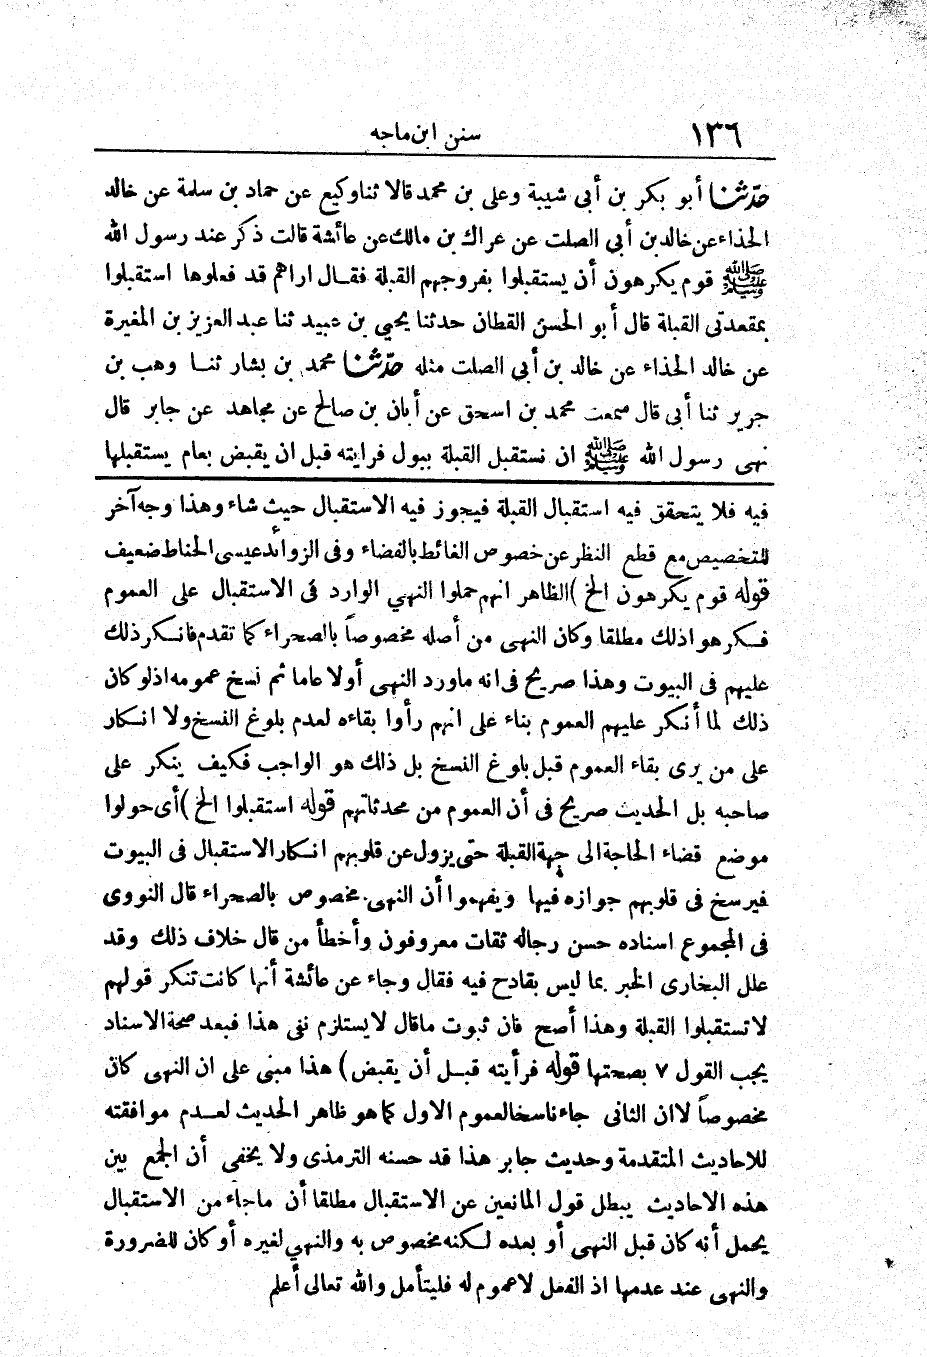 ١٣٦ سنن ابن ماجه
حدّثنا أبو بكر بن أبى شيبة وعلى بن محمد قالا ثنا وكيع عن حماد بن سلمة عن خالد
الحذاء عن خالد بن أبى الصلت عن عراك بن مالك عن عائشة قالت ذكر عند رسول الله
ﷺ قوم يكرهون أن يستقبلوا بفروجهم القبلة فقال اراهم قد فعلوها استقبلوا
بمقعدتى القبلة قال أبو الحسن القطان حدثنا يحيى بن عبيد ثنا عبد العزيز بن المغيرة
عن خالد الحذاء عن خالد بن أبى الصلت مثله حدّثنا محمد بن بشار ثنا وهب بن
جرير ثنا أبى قال سمعت محمد بن اسحق عن أبان بن صالح عن مجاهد عن جابر قال
نهى رسول الله ﷺ ان نستقبل القبلة ببول فرايته قبل ان يقبض بعام يستقبلها
فيه فلا يتحقق فيه استقبال القبلة فيجوز فيه الاستقبال حيث شاء وهذا وجه آخر
للتخصيص مع قطع النظر عن خصوص الغائط بالفضاء وفى الزوائد عيسى الحناط ضعيف
قوله قوم يكرهون الخ) الظاهر انهم حملوا النهي الوارد فى الاستقبال على العموم
فكرهوا ذلك مطلقا وكان النهى من أصله مخصوصاً بالصحراء كما تقدم فانكر ذلك
عليهم فى البيوت وهذا صريح فى انه ماورد النهى أولا عاما ثم نسخ عمومه اذلو كان
ذلك لما أنكر عليهم العموم بناء على انهم رأوا بقاءه لعدم بلوغ الفسخ ولا انكار
على من يرى بقاء العموم قبل بلوغ النسخ بل ذلك هو الواجب فكيف ينكر على
صاحبه بل الحديث صريح فى أن العموم من محدثاتهم قوله استقبلوا الخ) أى حولوا
موضع قضاء الحاجة الى جهة القبلة حتى يزول عن قلوبهم انكار الاستقبال فى البيوت
فيرسخ فى قلوبهم جوازه فيها ويفهموا أن النهى مخصوص بالصحراء قال النووى
فى المجموع اسناده حسن رجاله ثقات معروفون وأخطأ من قال خلاف ذلك وقد
علل البخارى الخبر بما ليس بقادح فيه فقال وجاء عن عائشة أنها كانت تنكر قولهم
لا تستقبلوا القبلة وهذا أصح فان ثبوت ماقال لا يستلزم نفى هذا فبعد صحة الاسناد
يجب القول ٧ بصحتها قوله فرأيته قبل أن يقبض) هذا مبنى على ان النهى كان
مخصوصاً لا ان الثانى جاء ناسخا لعموم الاول كما هو ظاهر الحديث لعدم موافقته
للاحاديث المتقدمة وحديث جابر هذا قد حسنه الترمذى ولا يخفى أن الجمع بين
هذه الاحاديث يبطل قول المانعين عن الاستقبال مطلقا أن ماجاء من الاستقبال
يحمل أنه كان قبل النهى أو بعده لكنه مخصوص به والنهى لغيره أو كان للضرورة
والنهى عند عدمها اذ الفعل لا عموم له فليتأمل والله تعالى أعلم